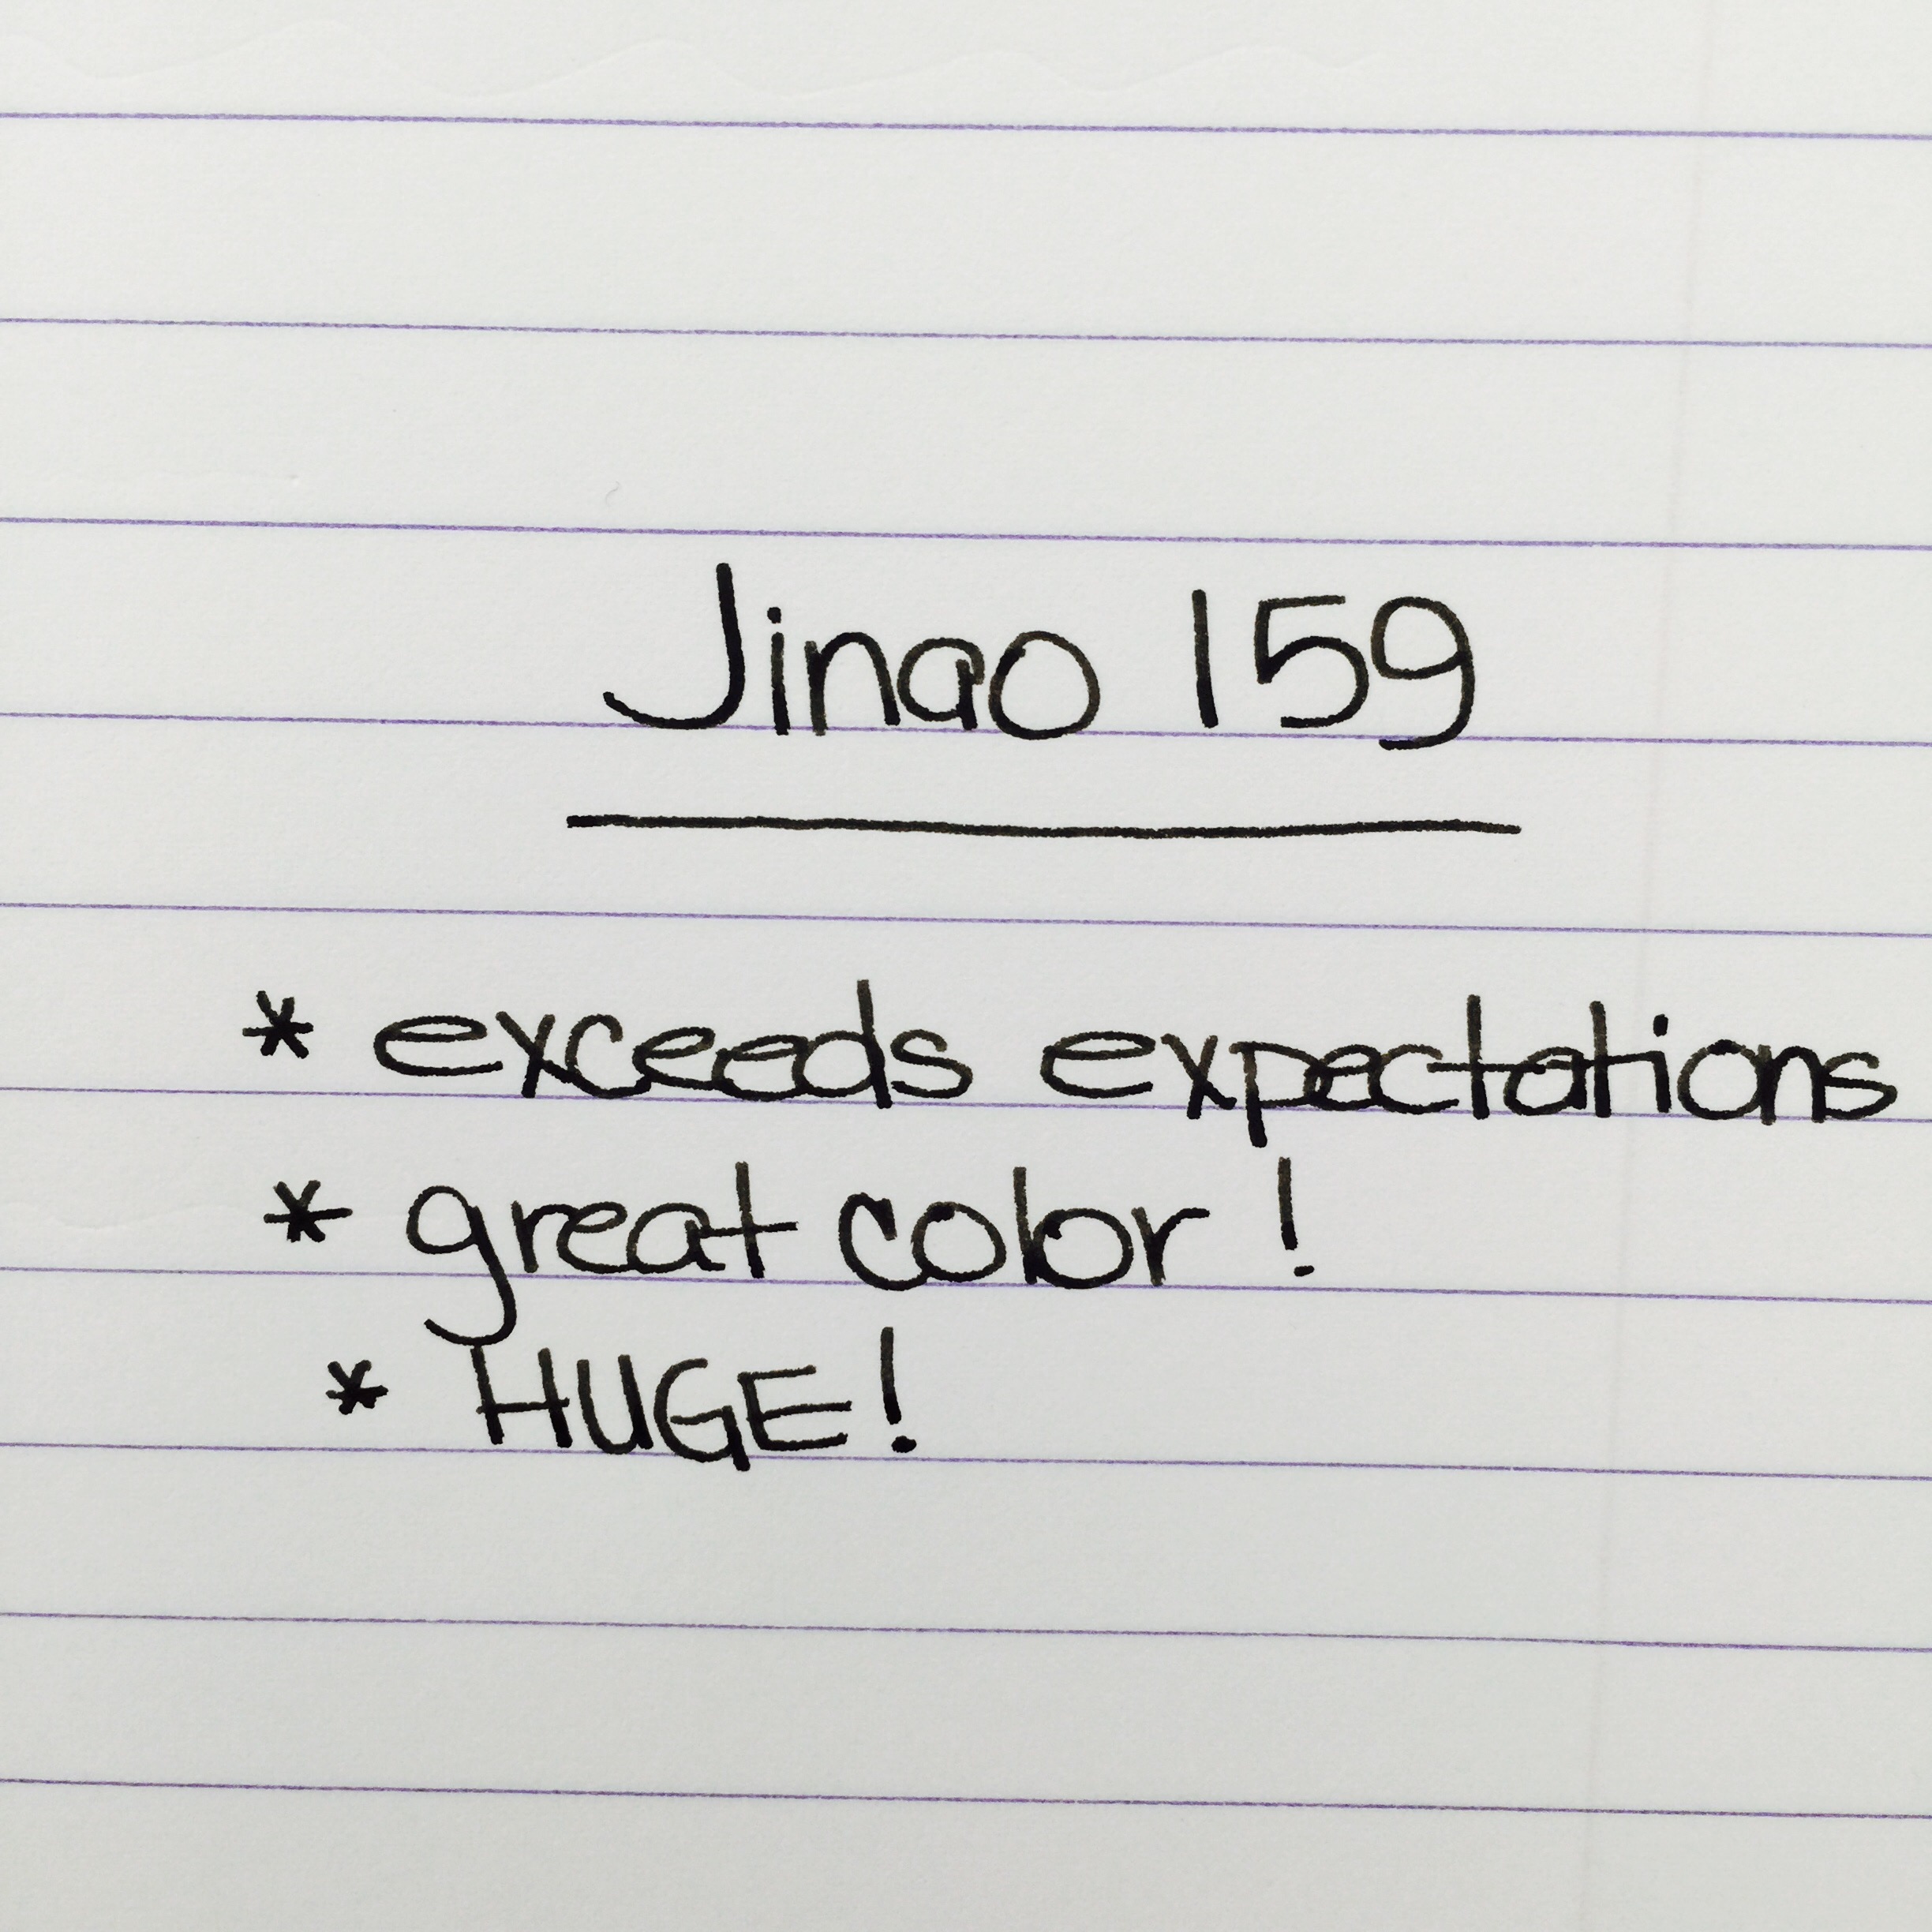 Jinao 159
* exceeds expectations
* great color!
* HUGE!